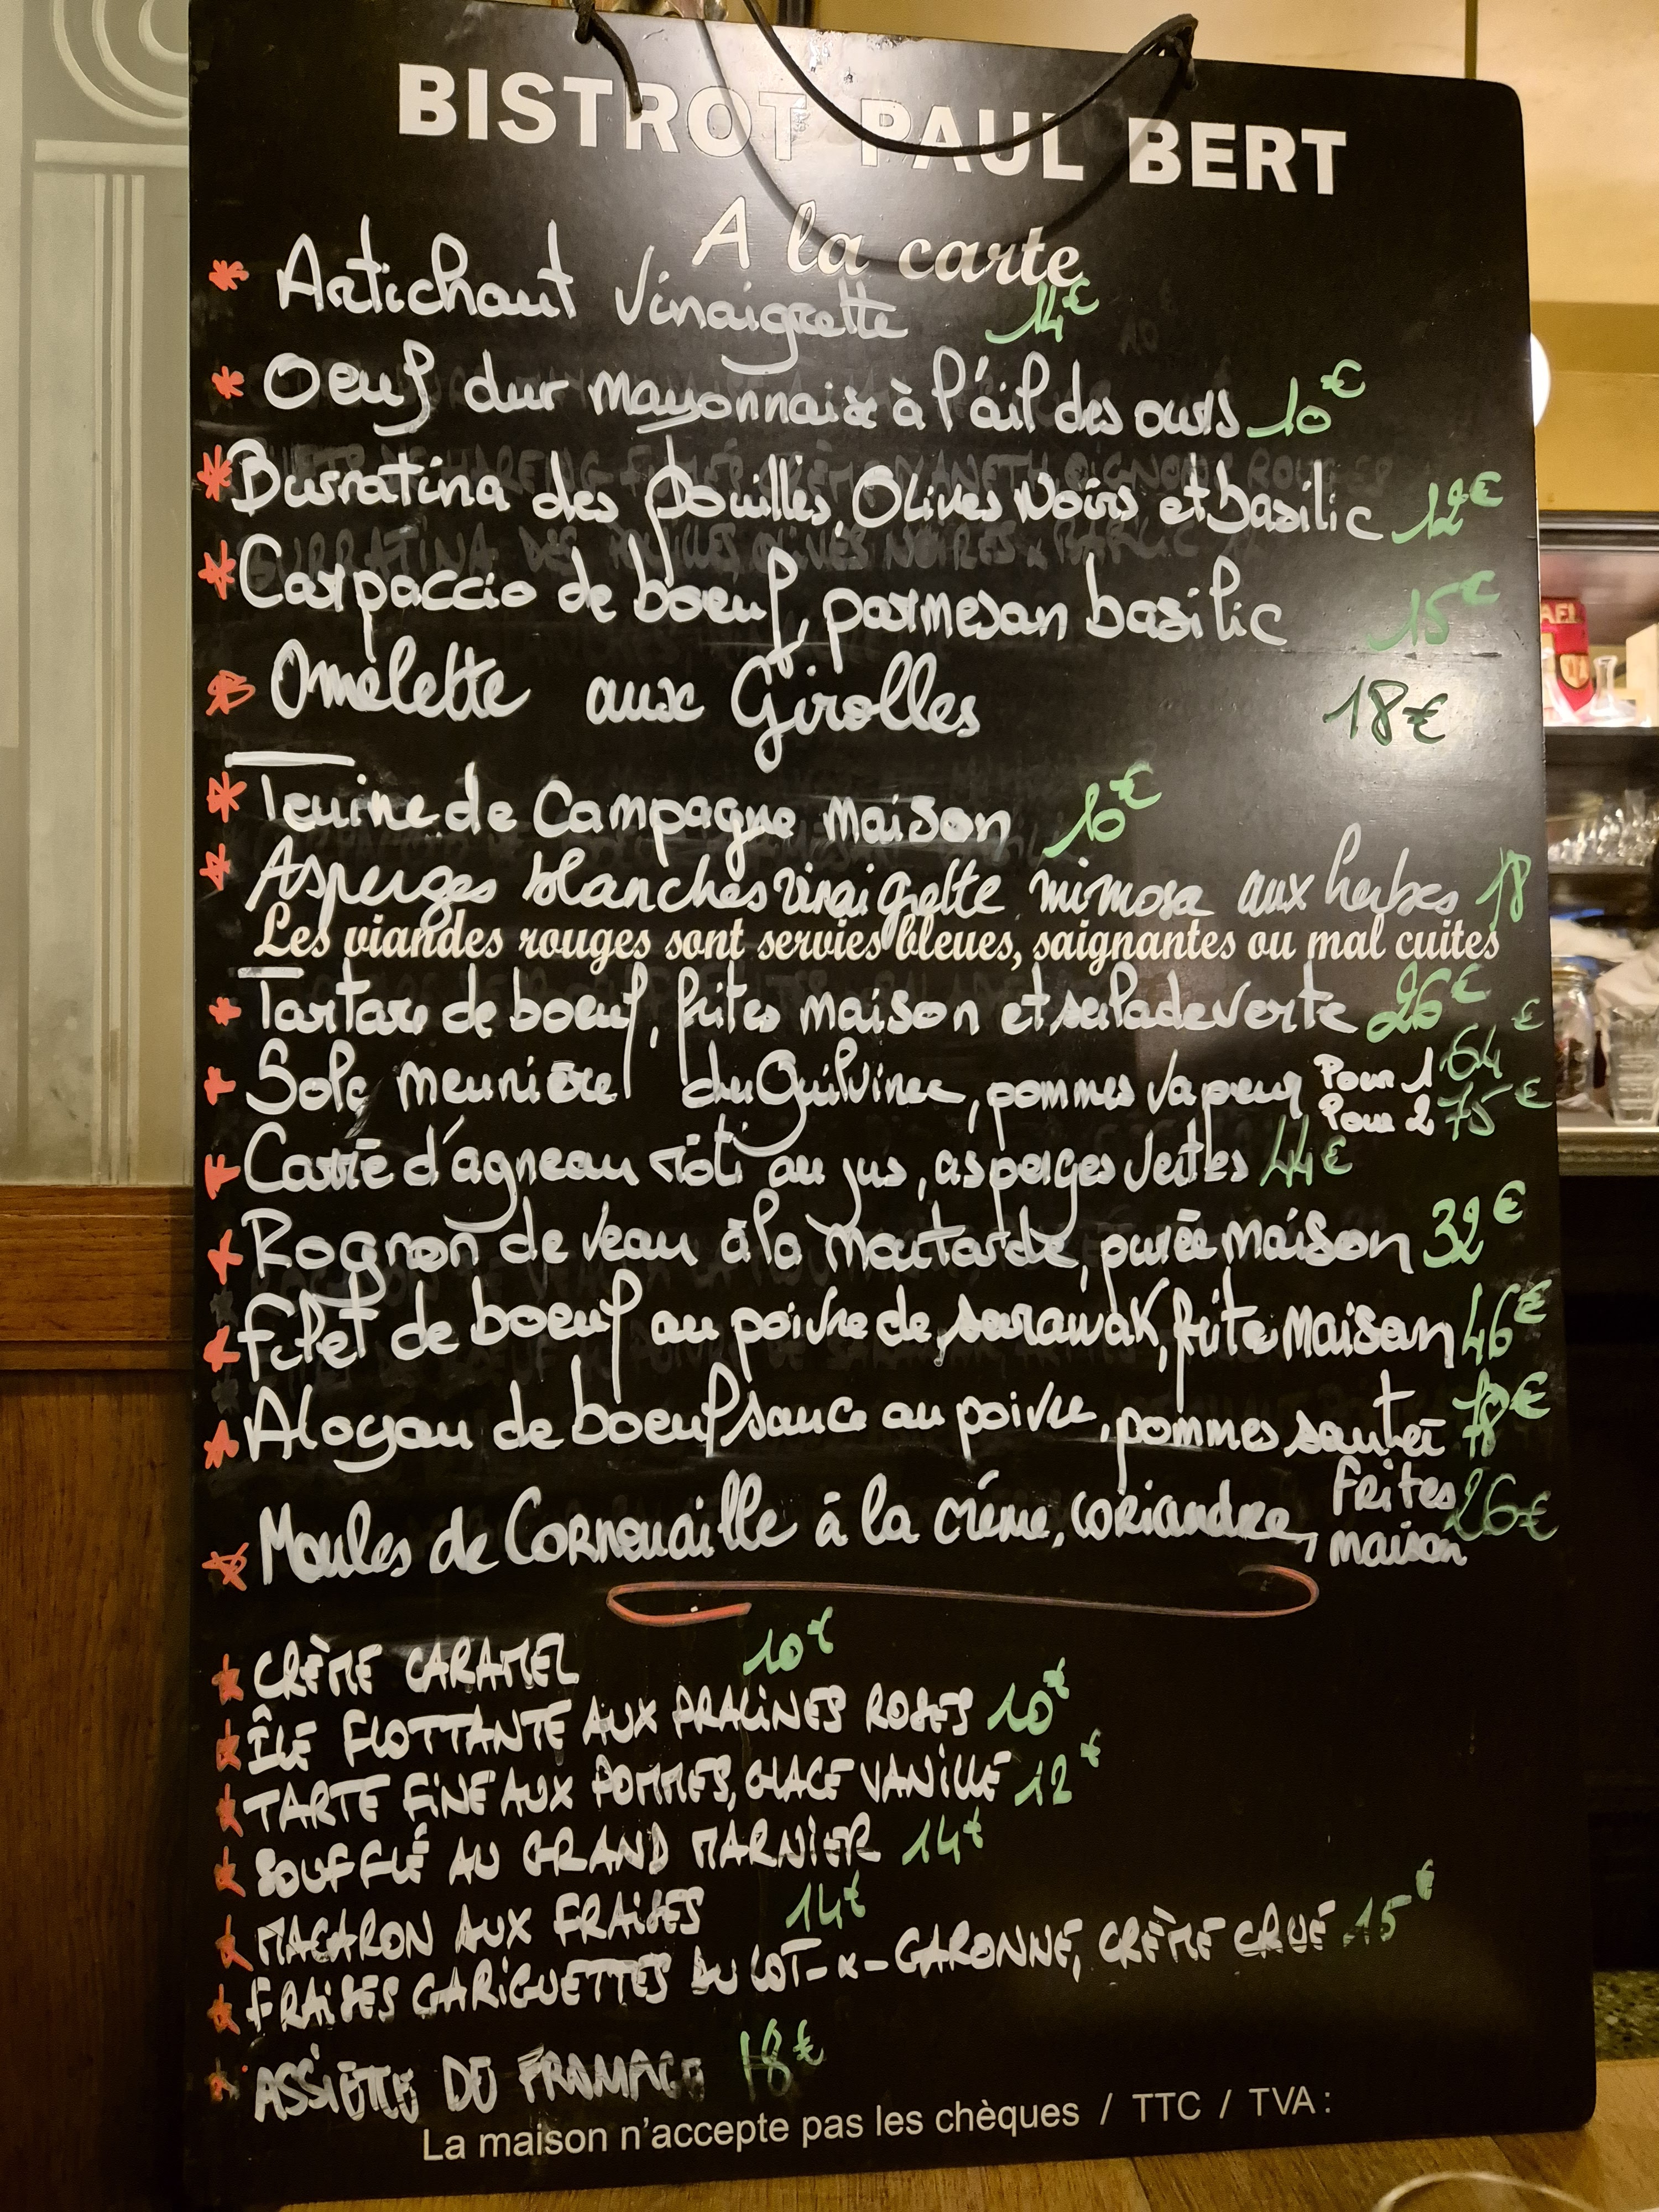 BISTROT PAUL BERT
A la carte
* Artichaut Vinaigrette 14€
* Oeuf dur mayonnaise à l'ail des ours 10€
* Burratina des Pouilles, Olives Noires et basilic 12€
* Carpaccio de boeuf, parmesan basilic 15€
* Omelette aux Girolles 18€
* Terrine de Campagne Maison 10€
* Asperges blanches vinaigrette mimosa aux herbes 18
Les viandes rouges sont servies bleues, saignantes ou mal cuites
* Tartare de boeuf, frites maison et salade verte 26€
* Sole meunière du Guilvinec, pommes vapeur Pour 1 64€
Pour 2 75€
* Carré d'agneau rôti au jus, asperges vertes 44€
* Rognon de veau à la moutarde, purée maison 32€
* Filet de boeuf au poivre de sarawak, frite Maison 46€
* Aloyau de boeuf sauce au poivre, pommes sautée 78€
* Moules de Cornouaille à la crème, coriandre, Frites maison 26€
* CRÈME CARAMEL 10€
* ÎLE FLOTTANTE AUX PRALINES ROSES 10€
* TARTE FINE AUX POMMES, GLACE VANILLE 12€
* SOUFFLÉ AU GRAND MARNIER 14€
* MACARON AUX FRAISES 14€
* FRAISES GARIGUETTES DU LOT-&-GARONNE, CRÈME CRUE 15€
* ASSIETTE DE FROMAGE 18€
La maison n'accepte pas les chèques / TTC / TVA :